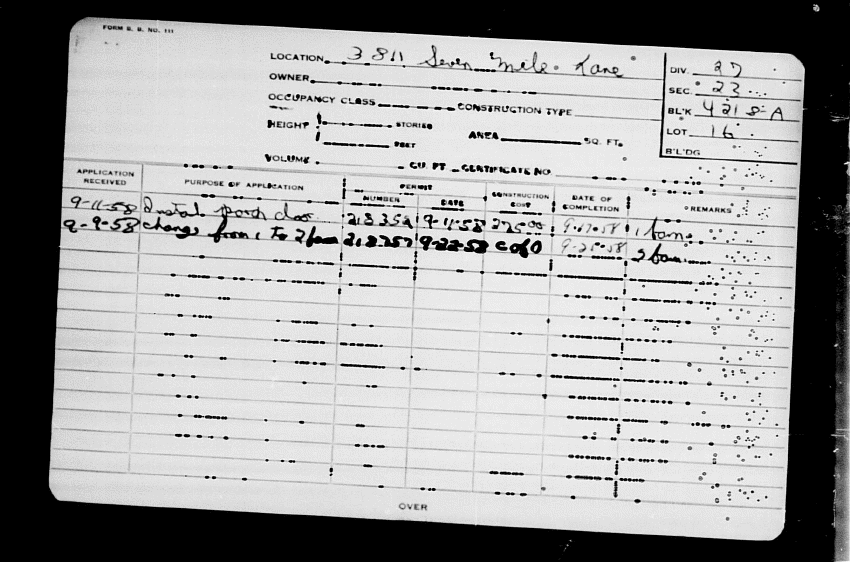 FORM B. B. NO. 111
LOCATION 3811 Seven Mile Lane
OWNER
OCCUPANCY CLASS CONSTRUCTION TYPE
HEIGHT STORIES
FEET
AREA SQ. FT.
VOLUME CU. FT. CERTIFICATE NO
DIV. 27
SEC. 23
BL'K 4218-A
LOT 16
B'L'DG
APPLICATION RECEIVED PURPOSE OF APPLICATION PERMIT NUMBER DATE CONSTRUCTION COST DATE OF COMPLETION REMARKS
9-11-58 Install porch door 218352 9-11-58 275 00 58 1 fam.
9-9-58 change from 1 to 2 fam 218757 9-22-58 C of O 9-25-58 2 fam.
OVER